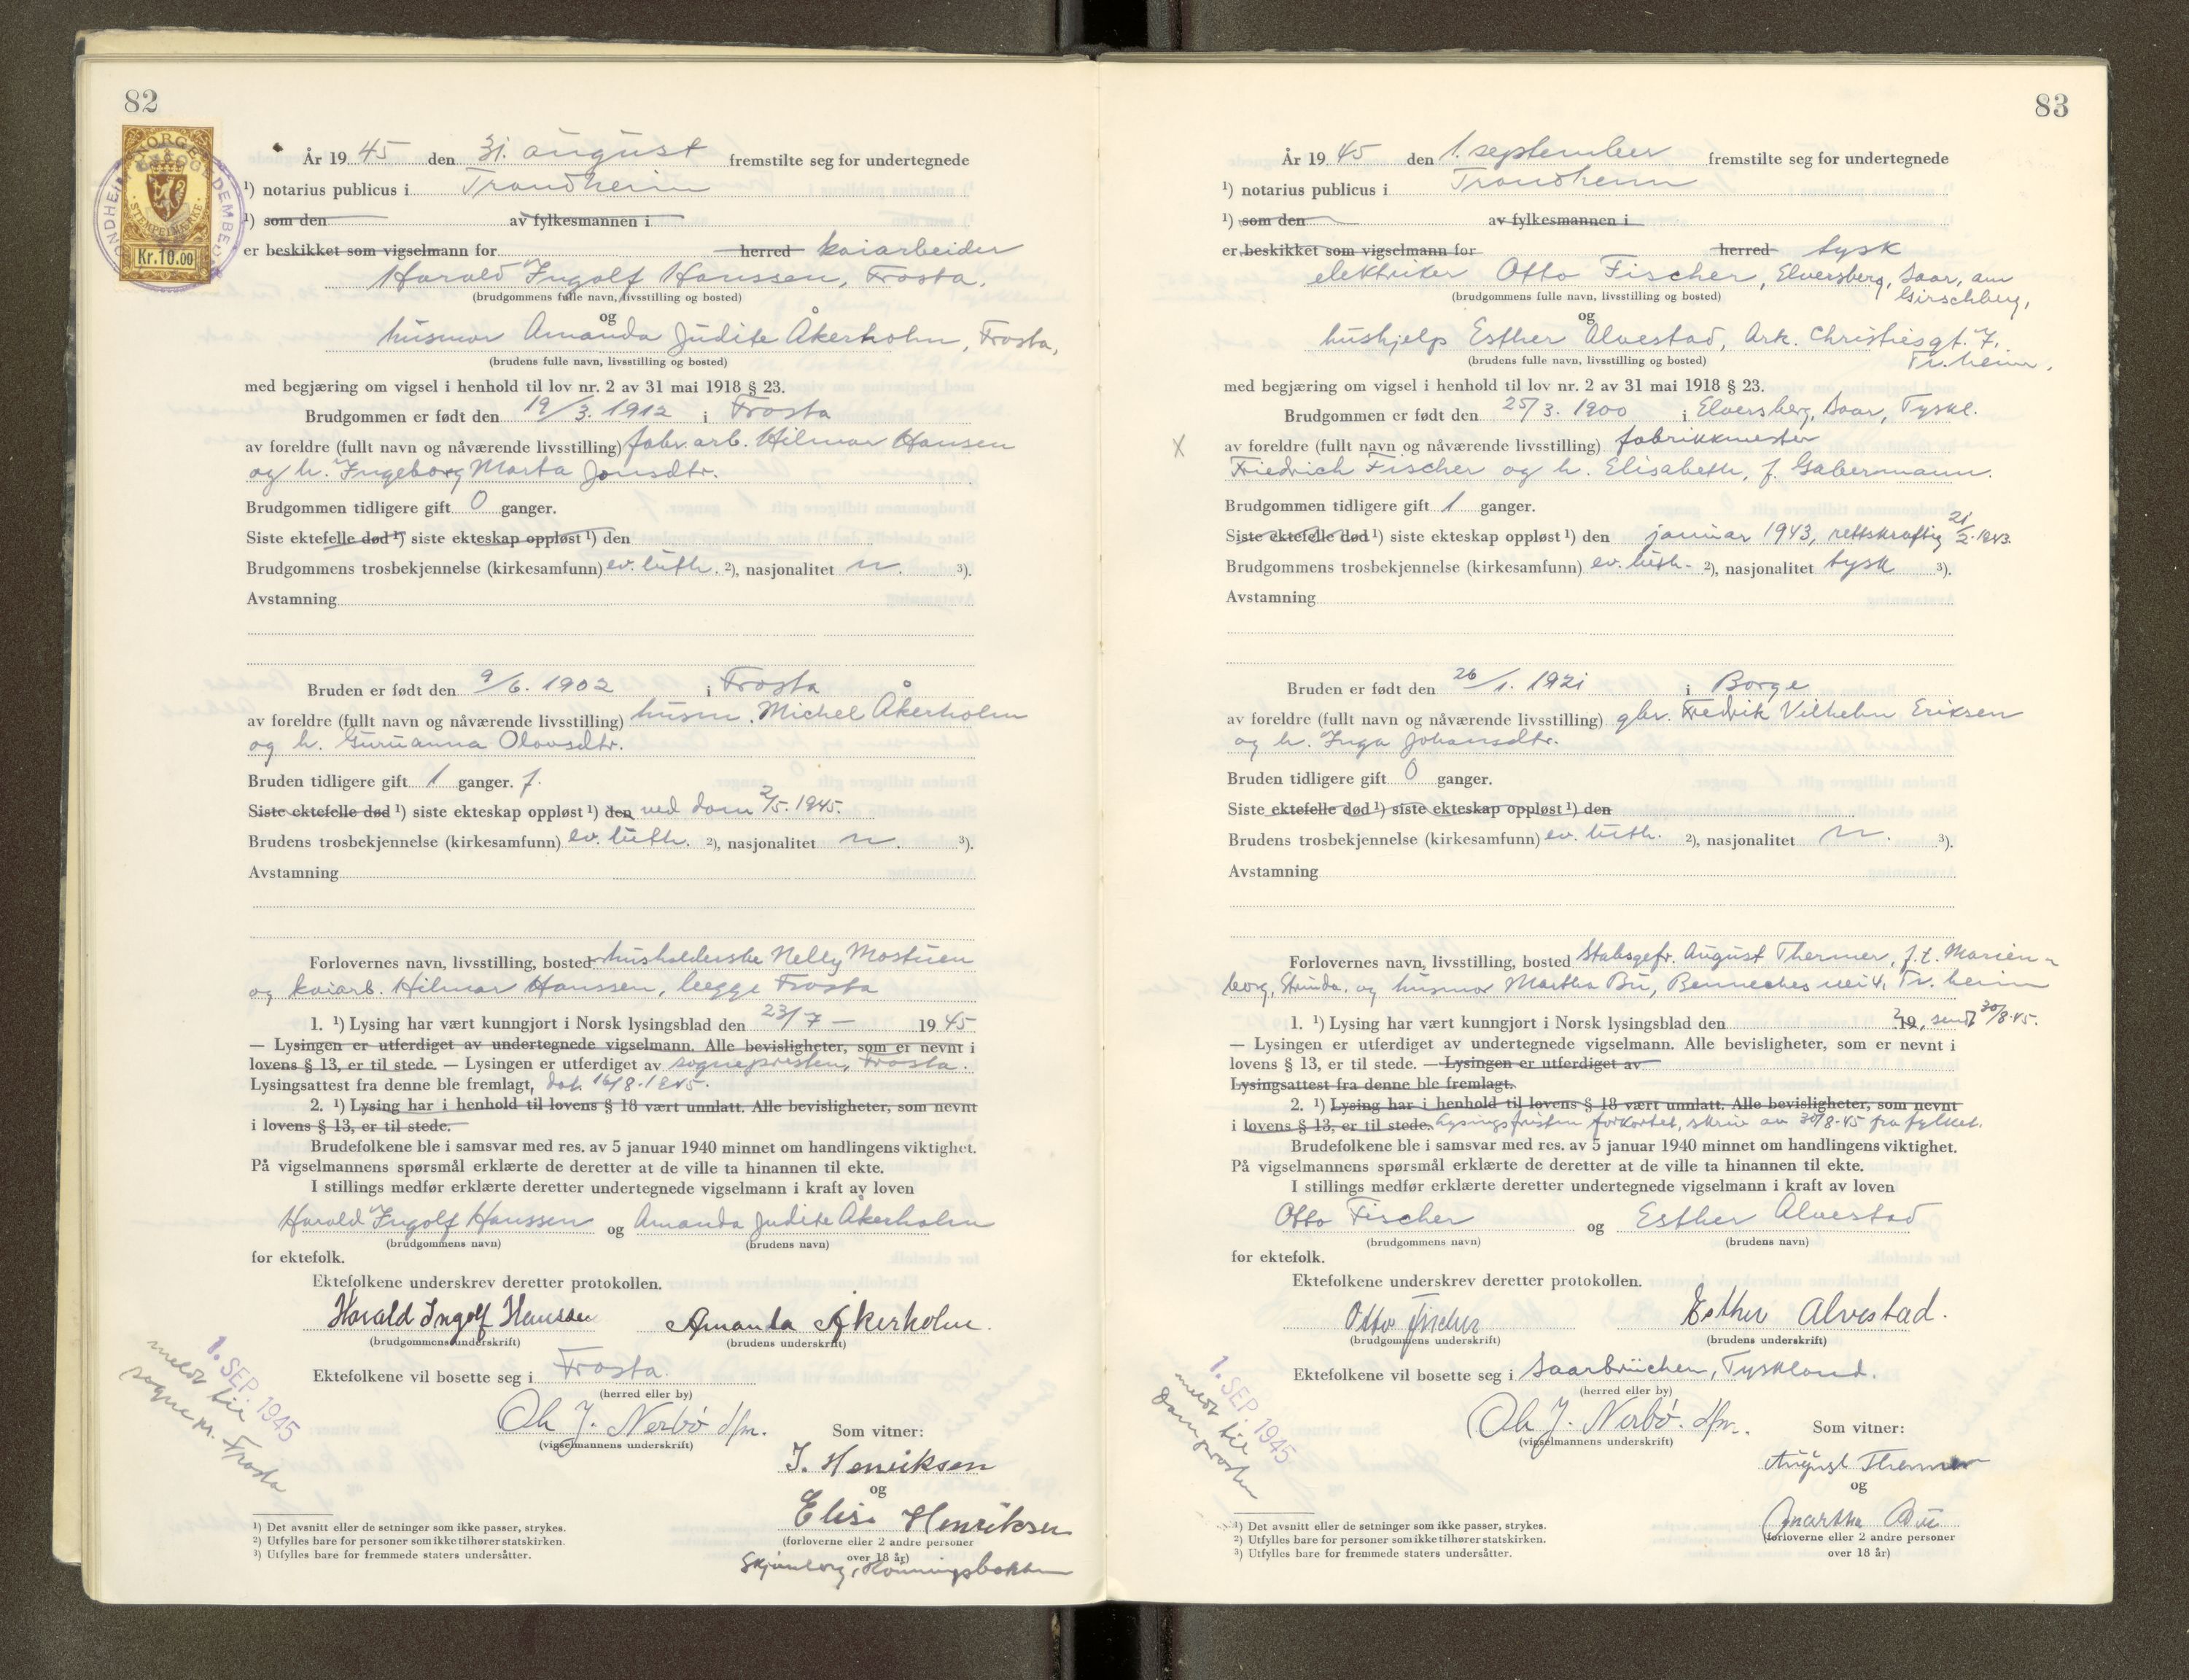 82
NORGE
STEMPELMERKE
Kr.10.00
År 19 45 den 31. august fremstilte seg for undertegnede
¹) notarius publicus i Trondheim
¹) som den av fylkesmannen i
er beskikket som vigselmann for herred kaiarbeider
Harald Ingolf Hanssen, Frosta.
(brudgommens fulle navn, livsstilling og bosted)
og
husmor Amanda Judite Åkerholm, Frosta,
(brudens fulle navn, livsstilling og bosted)
med begjæring om vigsel i henhold til lov nr. 2 av 31 mai 1918 § 23.
Brudgommen er født den 19/3. 1912 i Frosta
av foreldre (fullt navn og nåværende livsstilling) fabr. arb. Hilmar Hansen
og h. Ingeborg Marta Jonsdtr.
Brudgommen tidligere gift 0 ganger.
Siste ektefelle død ¹) siste ekteskap oppløst ¹) den
Brudgommens trosbekjennelse (kirkesamfunn) ev. luth. ²), nasjonalitet n. ³).
Avstamning
Bruden er født den 9/6. 1902 i Frosta
av foreldre (fullt navn og nåværende livsstilling) husm. Michel Åkerholm
og h. Guruanna Olovsdtr.
Bruden tidligere gift 1 ganger. f.
Siste ektefelle død ¹) siste ekteskap oppløst ¹) den ved dom 2/5. 1945.
Brudens trosbekjennelse (kirkesamfunn) ev. luth. ²), nasjonalitet n. ³).
Avstamning
Forlovernes navn, livsstilling, bosted husholderske Nelly Mostuen
og kaiarb. Hilmar Hanssen, begge Frosta
1. ¹) Lysing har vært kunngjort i Norsk lysingsblad den 23/7 – 19 45
— Lysingen er utferdiget av undertegnede vigselmann. Alle bevisligheter, som er nevnt i
lovens § 13, er til stede. — Lysingen er utferdiget av sognepresten, Frosta.
Lysingsattest fra denne ble fremlagt, dat. 16/8. 1945.
2. ¹) Lysing har i henhold til lovens § 18 vært unnlatt. Alle bevisligheter, som nevnt
i lovens § 13, er til stede.
Brudefolkene ble i samsvar med res. av 5 januar 1940 minnet om handlingens viktighet.
På vigselmannens spørsmål erklærte de deretter at de ville ta hinannen til ekte.
I stillings medfør erklærte deretter undertegnede vigselmann i kraft av loven
Harald Ingolf Hanssen og Amanda Judite Åkerholm
(brudgommens navn) (brudens navn)
for ektefolk.
Ektefolkene underskrev deretter protokollen.
Harald Ingolf Hanssen Amanda Åkerholm.
(brudgommens underskrift) (brudens underskrift)
Ektefolkene vil bosette seg i Frosta.
(herred eller by)
Ole J. Nerbø dfm.
(vigselmannens underskrift)
Som vitner:
J. Henriksen
og
Elise Henriksen
(forloverne eller 2 andre personer
over 18 år)
1. SEP. 1945
meldt til
sognepr. Frosta
¹) Det avsnitt eller de setninger som ikke passer, strykes.
²) Utfylles bare for personer som ikke tilhører statskirken.
³) Utfylles bare for fremmede staters undersåtter.
83
År 19 45 den 1. september fremstilte seg for undertegnede
¹) notarius publicus i Trondheim
¹) som den av fylkesmannen i
er beskikket som vigselmann for herred tysk
elektriker Otto Fischer, Elversberg, Saar, am
Girschberg,
(brudgommens fulle navn, livsstilling og bosted)
og
hushjelp Esther Alvestad, Ark. Christiesgt. 7.
Tr.heim.
(brudens fulle navn, livsstilling og bosted)
med begjæring om vigsel i henhold til lov nr. 2 av 31 mai 1918 § 23.
Brudgommen er født den 25/3. 1900 i Elversberg, Saar, Tyskl.
X av foreldre (fullt navn og nåværende livsstilling) fabrikkmester
Friedrich Fischer og h. Elisabeth, f. Gabermann.
Brudgommen tidligere gift 1 ganger.
Siste ektefelle død ¹) siste ekteskap oppløst ¹) den januar 1943, rettskraftig 21/2. 1943.
Brudgommens trosbekjennelse (kirkesamfunn) ev. luth. ²), nasjonalitet tysk ³).
Avstamning
Bruden er født den 26/1. 1921 i Borge
av foreldre (fullt navn og nåværende livsstilling) gbr. Fredrik Vilhelm Eriksen
og h. Inga Johansdtr.
Bruden tidligere gift 0 ganger.
Siste ektefelle død ¹) siste ekteskap oppløst ¹) den
Brudens trosbekjennelse (kirkesamfunn) ev. luth. ²), nasjonalitet n. ³).
Avstamning
Forlovernes navn, livsstilling, bosted Stabsgefr. August Thermer, f.t. Marien-
borg, Strinda. og husmor Martha Bu, Bennechesvei 4, Tr. heim
1. ¹) Lysing har vært kunngjort i Norsk lysingsblad den 19 , sendt 30/8.45.
— Lysingen er utferdiget av undertegnede vigselmann. Alle bevisligheter, som er nevnt i
lovens § 13, er til stede. — Lysingen er utferdiget av
Lysingsattest fra denne ble fremlagt.
2. ¹) Lysing har i henhold til lovens § 18 vært unnlatt. Alle bevisligheter, som nevnt
i lovens § 13, er til stede. Lysingsfristen forkortet, skriv av 30/8-45 fra fylket.
Brudefolkene ble i samsvar med res. av 5 januar 1940 minnet om handlingens viktighet.
På vigselmannens spørsmål erklærte de deretter at de ville ta hinannen til ekte.
I stillings medfør erklærte deretter undertegnede vigselmann i kraft av loven
Otto Fischer og Esther Alvestad
(brudgommens navn) (brudens navn)
for ektefolk.
Ektefolkene underskrev deretter protokollen.
Otto Fischer Esther Alvestad.
(brudgommens underskrift) (brudens underskrift)
Ektefolkene vil bosette seg i Saarbrücken, Tyskland.
(herred eller by)
Ole J. Nerbø. dfm.
(vigselmannens underskrift)
Som vitner:
August Thermer
og
Martha Bu
(forloverne eller 2 andre personer
over 18 år)
1. SEP. 1945
meldt til
Domprosten
¹) Det avsnitt eller de setninger som ikke passer, strykes.
²) Utfylles bare for personer som ikke tilhører statskirken.
³) Utfylles bare for fremmede staters undersåtter.